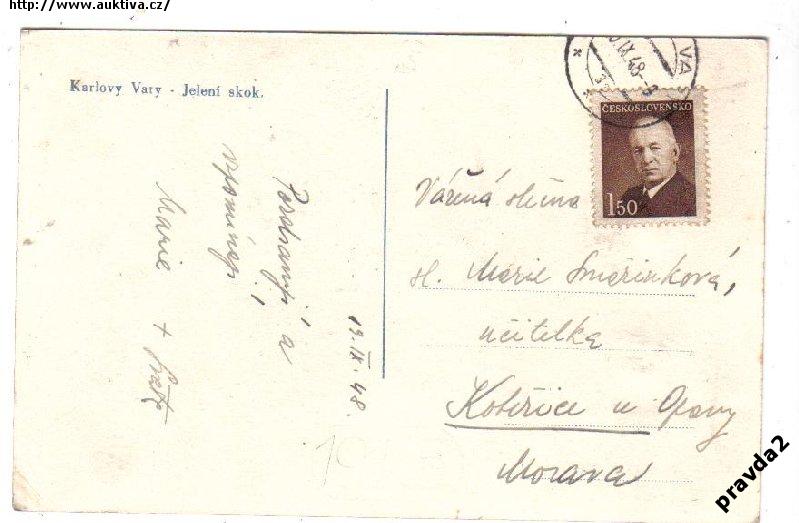 http://www.auktiva.cz/
Karlovy Vary - Jelení skok.
Pozdravují a
vzpomínají
Marie +
19.IX.48.
IX 48-8
VA
ČESKOSLOVENSKO
1.50
Vážená slečna
sl. Marie Smeřinková,
učitelka
Kobeřice u Opavy
Morava
pravda2